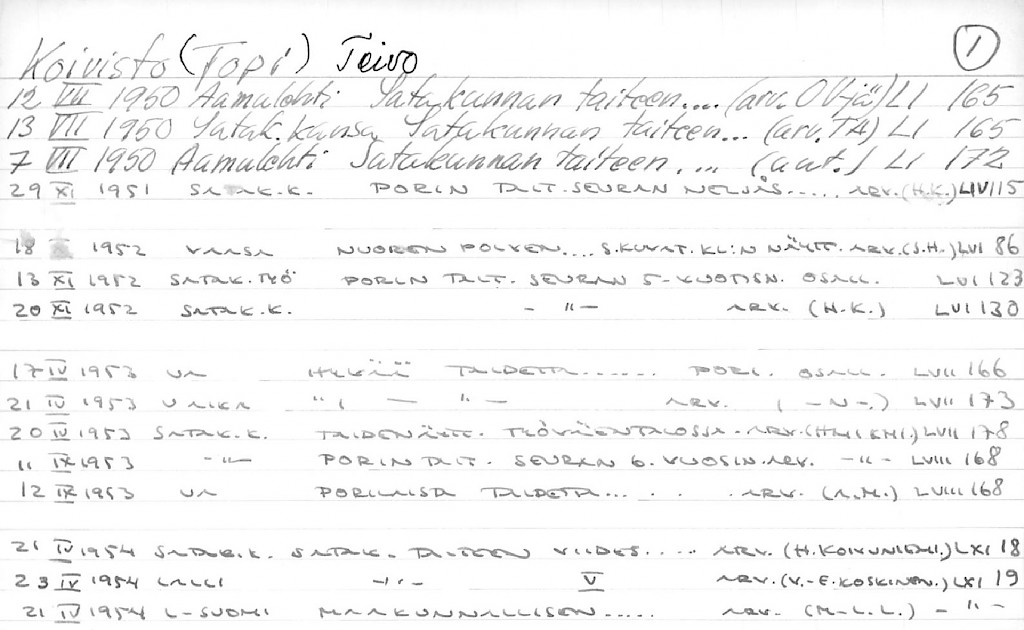 Koivisto (Topi) Teivo 1
12 VII 1950 Aamulehti Satakunnan taiteen.... (arv. O V-jä) LI 165
13 VII 1950 Satak. kansa Satakunnan taiteen... (arv. TA) LI 165
7 VII 1950 Aamulehti Satakunnan taiteen.... (aut.) LI 172
29 XI 1951 SATAK.K. PORIN TAIT.SEURAN NELJÄS..... ARV.(H.K.) LIV 115
18 1952 VAASA NUOREN POLVEN.... S.KUVAT.KL:N NÄYTT. ARV.(S.H.) LVI 86
13 XI 1952 SATAK.TYÖ PORIN TAIT. SEURAN 5-VUOTISN. OSALL. LVI 123
20 XI 1952 SATAK.K. - " - ARV. (H.K.) LVI 130
17 IV 1953 UA HYVÄÄ TAIDETTA....... PORI. OSALL. LVII 166
21 IV 1953 U AIKA " ( - " - ARV. ( -N-.) LVII 173
20 IV 1953 SATAK.K. TAIDENÄYTT. TYÖVÄENTALOSSA. ARV.(H.) LVII 178
11 IX 1953 - " - PORIN TAIT. SEURAN 6. VUOSIN. ARV. - " - LVIII 168
12 IX 1953 UA PORILAISTA TAIDETTA... . . ARV. (A.M.) LVIII 168
21 IV 1954 SATAK.K. SATAK. TAITEEN VIIDES..... ARV. (H.KOIVUNIEMI.) LXI 18
23 IV 1954 LALLI - " - V ARV.(V.-E.KOSKINEN.) LXI 19
21 IV 1954 L-SUOMI MAAKUNNALLISEN..... ARV. (M-L.L.) - " -